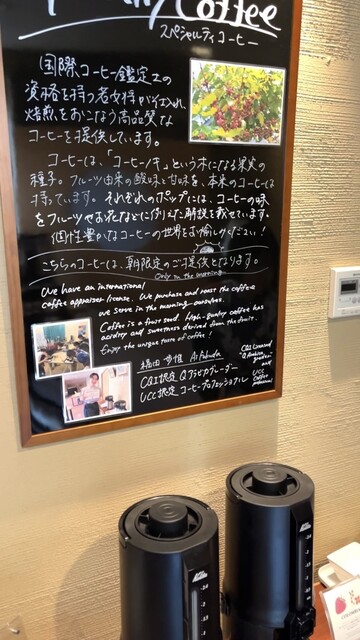 Coffee
スペシャルティコーヒー
国際コーヒー鑑定士の
資格を持つ若女将が仕入れ、
焙煎をおこなう高品質な
コーヒーを提供しています。
コーヒーは、「コーヒーノキ」という木になる果実の
種子。フルーツ由来の酸味と甘味を、本来のコーヒーは
持っています。それぞれのポップには、コーヒーの味
をフルーツやお花などに例えた解説を載せています。
個性豊かなコーヒーの世界をお愉しみください!
こちらのコーヒーは、朝限定のご提供となります。
Only in the morning
We have an international
coffee appraiser license. We purchase and roast the coffee
we serve in the morning ourselves.
Coffee is a fruit seed. high-quality coffee has
acidity and sweetness derived from the fruit.
Enjoy the unique taste of coffee!
Ai Fukuda
CQI認定 Qアラビカグレーダー
UCC認定 コーヒープロフェッショナル
CQI Licensed
"Q Arabica
grader"
and
UCC
Coffee
professional